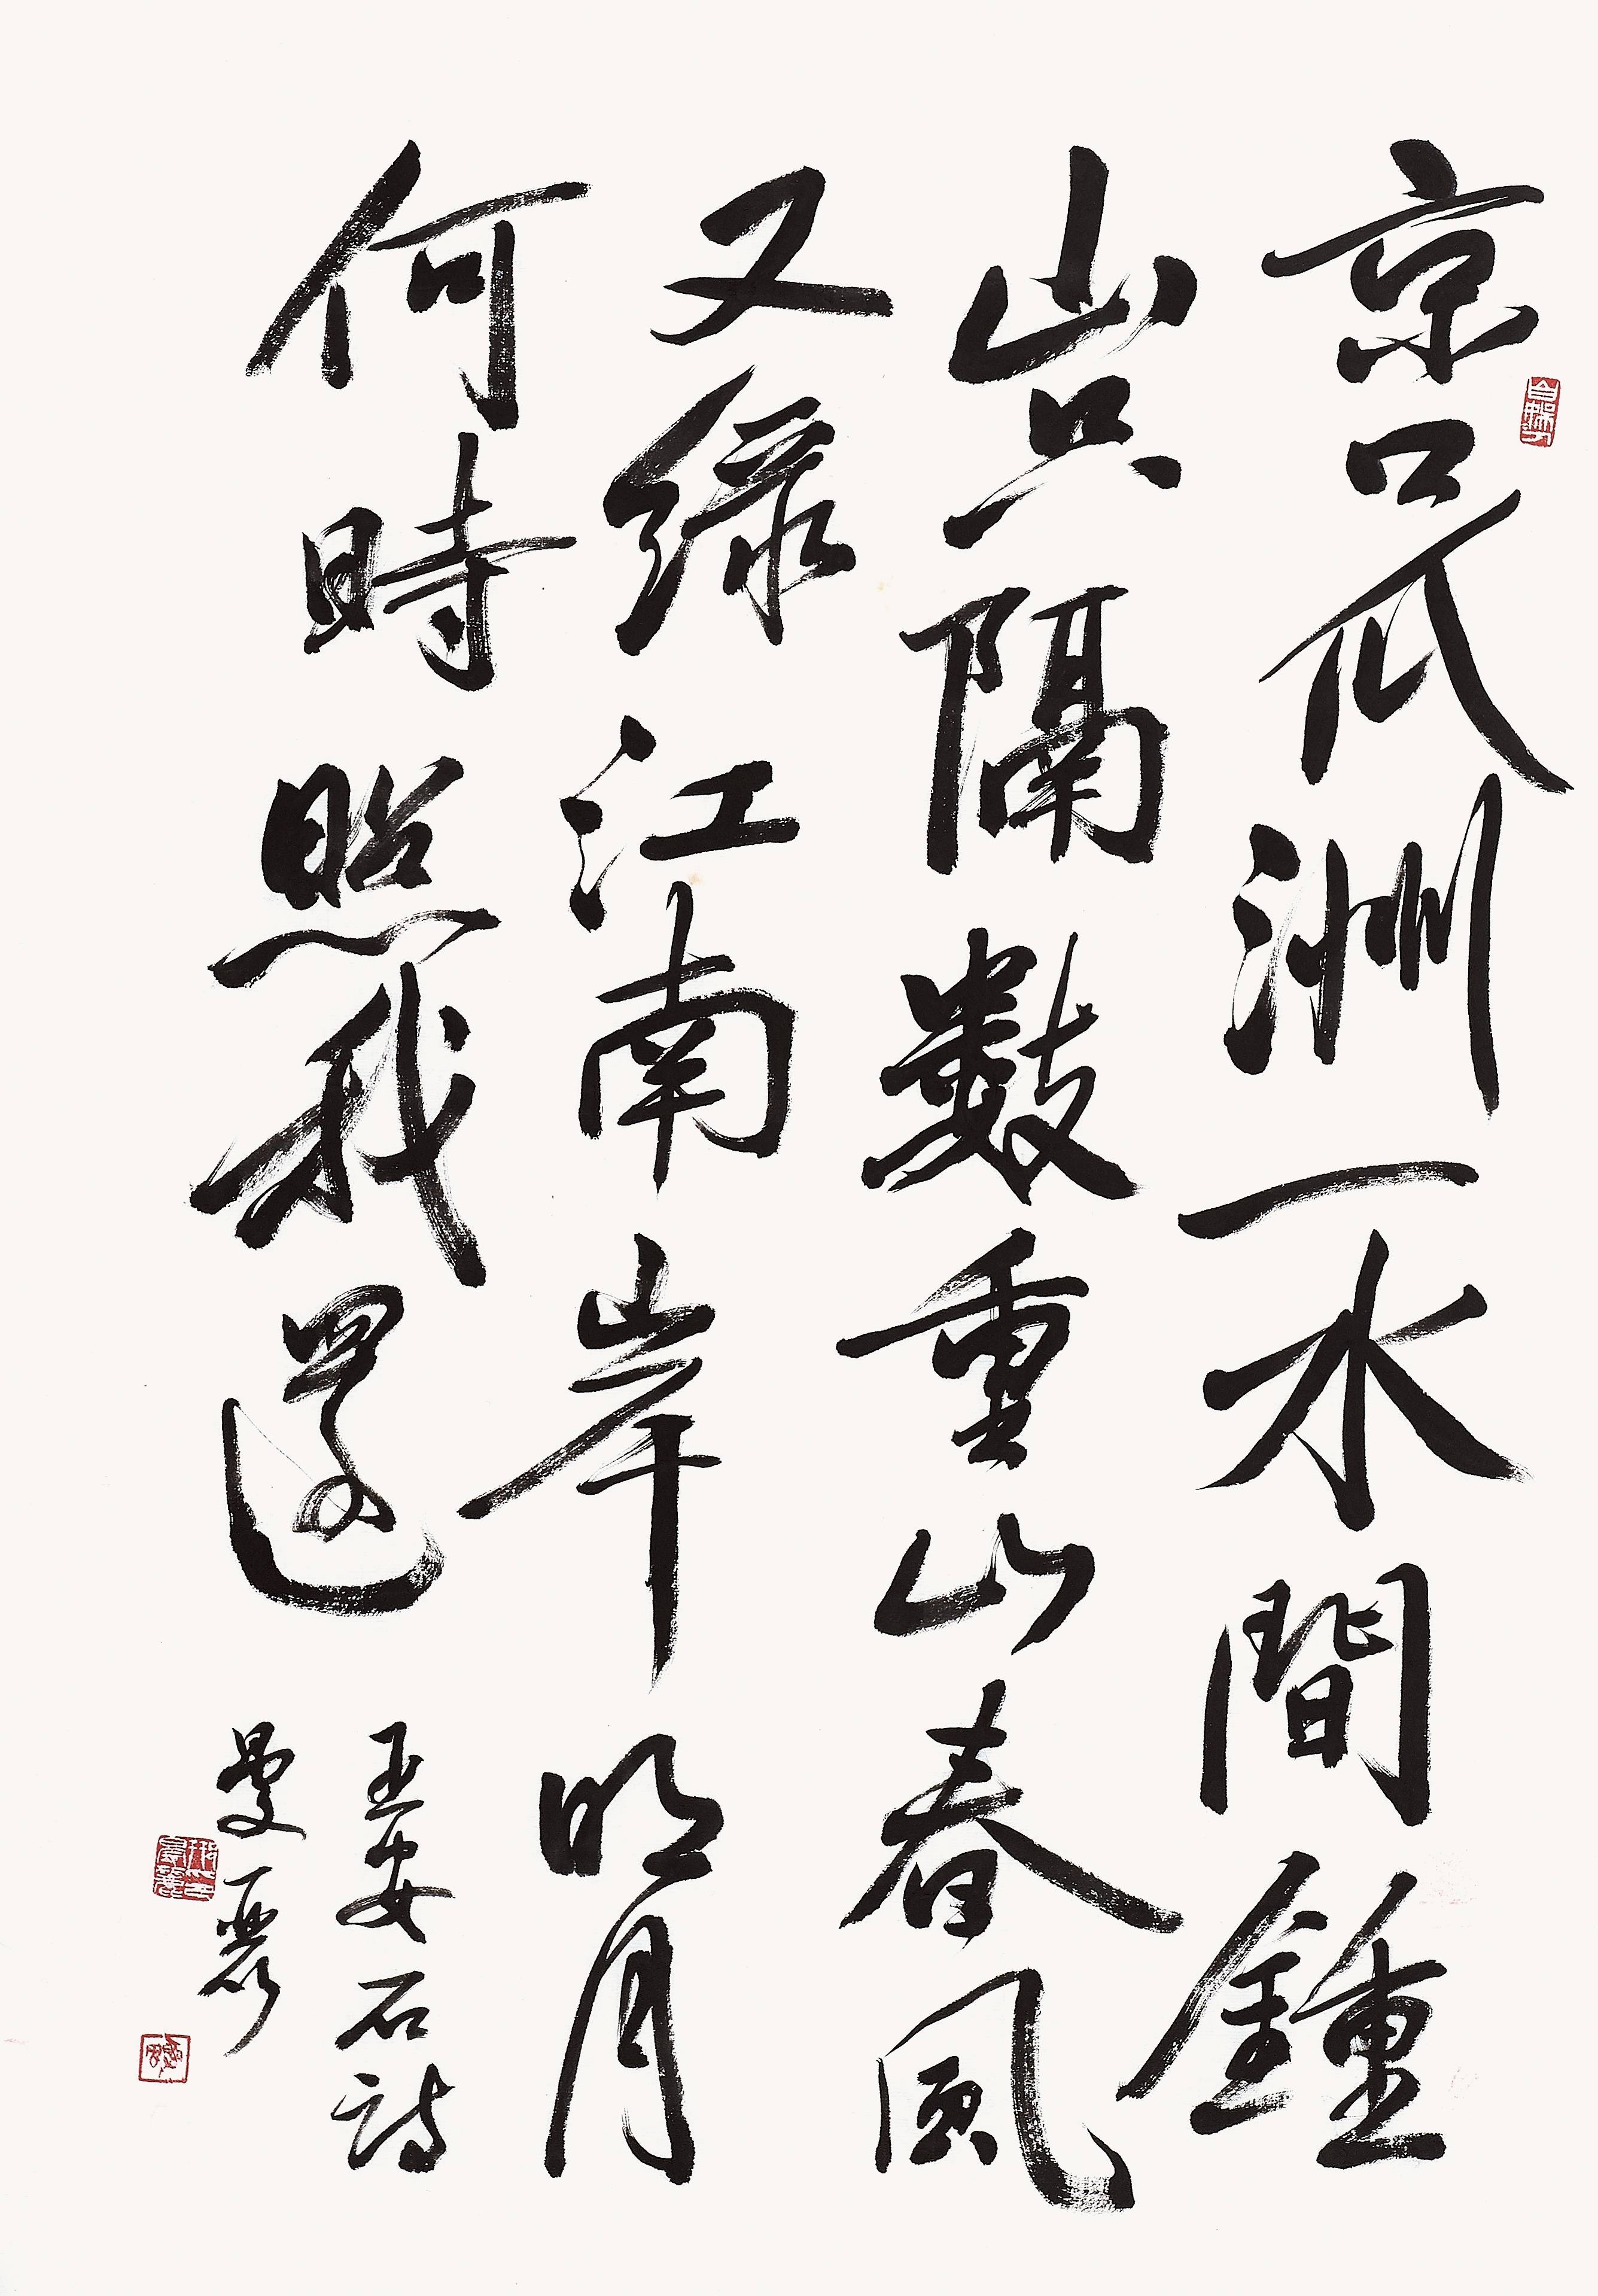 京口瓜洲一水間鍾
山只隔數重山春風
又綠江南岸明月
何時照我還
王安石詩
曼麗